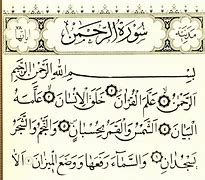 سُورَةُ الرَّحْمٰن
بِسْمِ اللَّهِ الرَّحْمَٰنِ الرَّحِيمِ
الرَّحْمَٰنُ ۝ عَلَّمَ الْقُرْآنَ ۝ خَلَقَ الْإِنْسَانَ ۝ عَلَّمَهُ
الْبَيَانَ ۝ الشَّمْسُ وَالْقَمَرُ بِحُسْبَانٍ ۝ وَالنَّجْمُ وَالشَّجَرُ
يَسْجُدَانِ ۝ وَالسَّمَاءَ رَفَعَهَا وَوَضَعَ الْمِيزَانَ ۝ أَلَّا